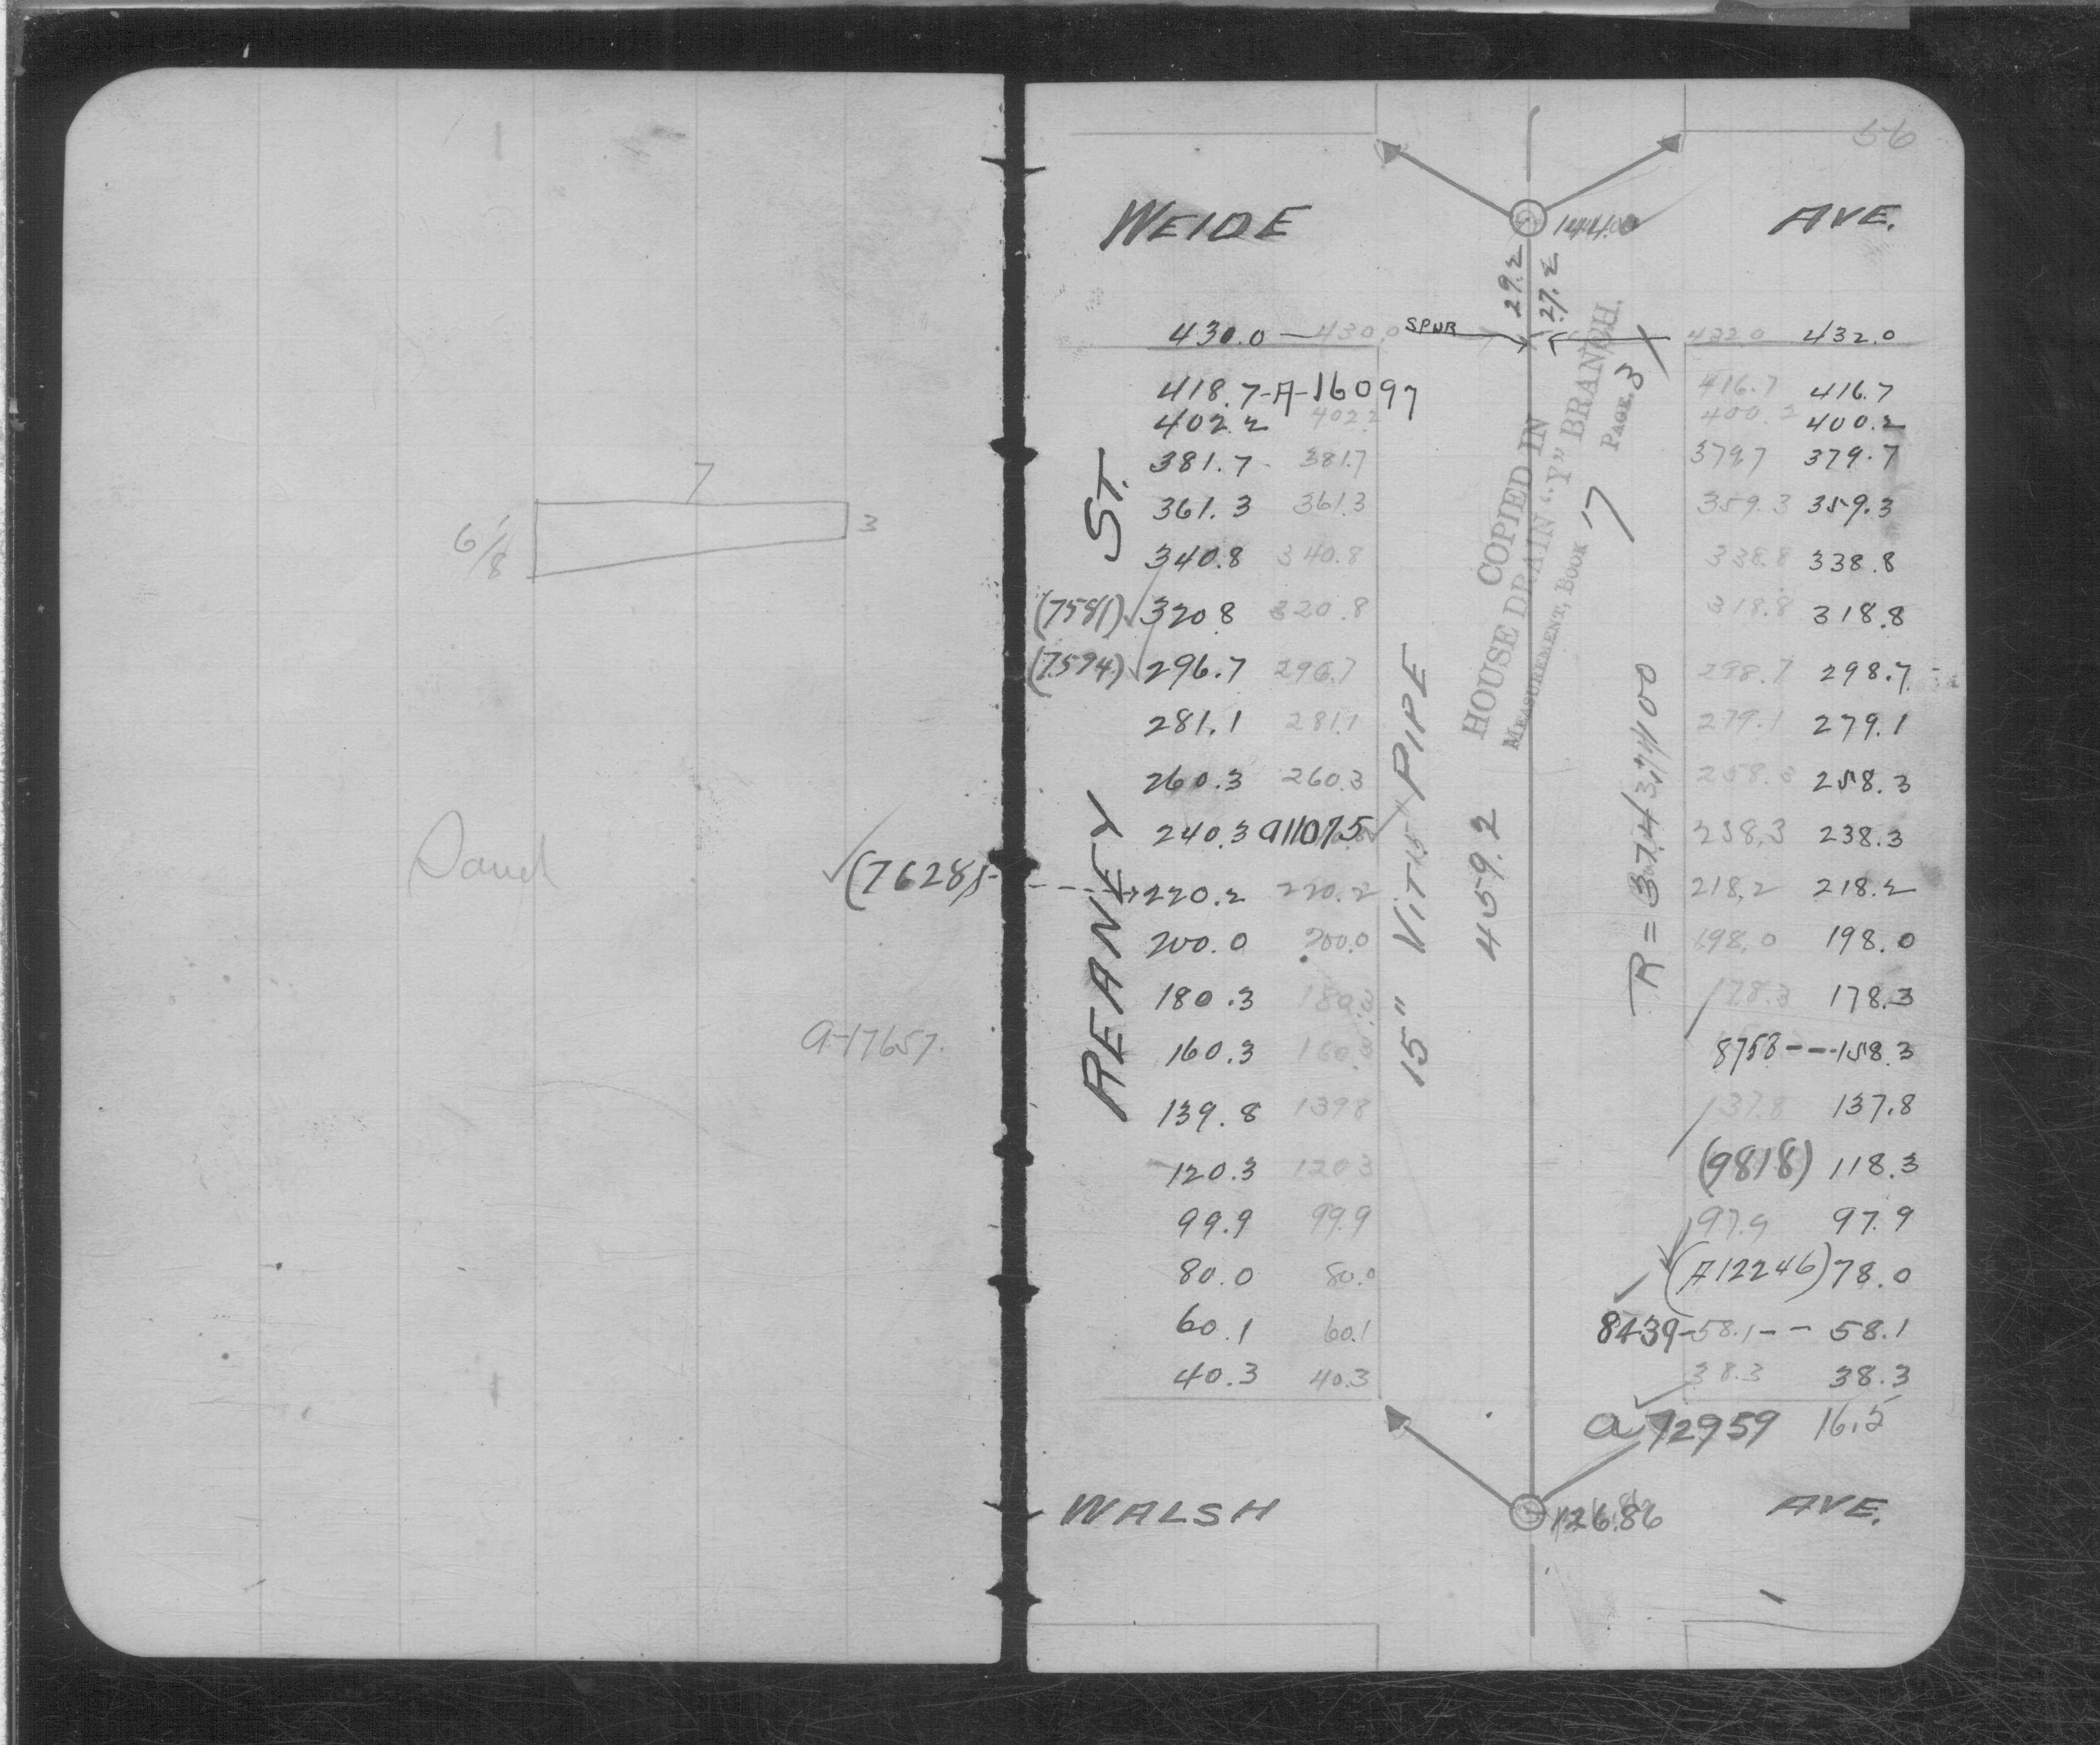 7
6 1/8
3
Sand
✓(7628)
a-17657.
56
WEIDE AVE.
144.0
29.2
27.2
430.0 — 430.0 SPUR 432.0 432.0
418.7-A-16097 416.7 416.7
402.2 402.2 400.2 400.2
381.7 381.7 379.7 379.7
361.3 361.3 359.3 359.3
340.8 340.8 338.8 338.8
(7581) ✓ 320.8 320.8 318.8 318.8
(7594) ✓ 296.7 296.7 298.7 298.7
281.1 281.1 279.1 279.1
260.3 260.3 258.3 258.3
240.3 a11075 ✓ 238.3 238.3
220.2 220.2 218.2 218.2
200.0 200.0 198.0 198.0
180.3 180.3 178.3 178.3
160.3 160.3 8758 --- 158.3
139.8 139.8 137.8 137.8
120.3 120.3 (9818) 118.3
99.9 99.9 97.9 97.9
80.0 80.0 (A12246) 78.0
60.1 60.1 8439-58.1-- 58.1
40.3 40.3 38.3 38.3
a 12959 16.5
REANEY ST.
15" VIT. PIPE
459.2
COPIED IN
HOUSE DRAIN "Y" BRANCH.
MEASUREMENT, BOOK 17 PAGE 3
WALSH AVE.
126.86